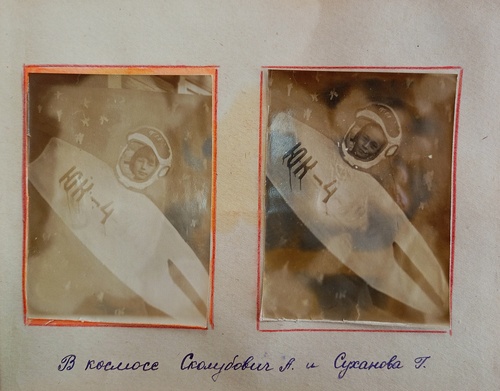 ЮК-4
ЮК-4
В космосе Сколубович А. и Суханова Г.